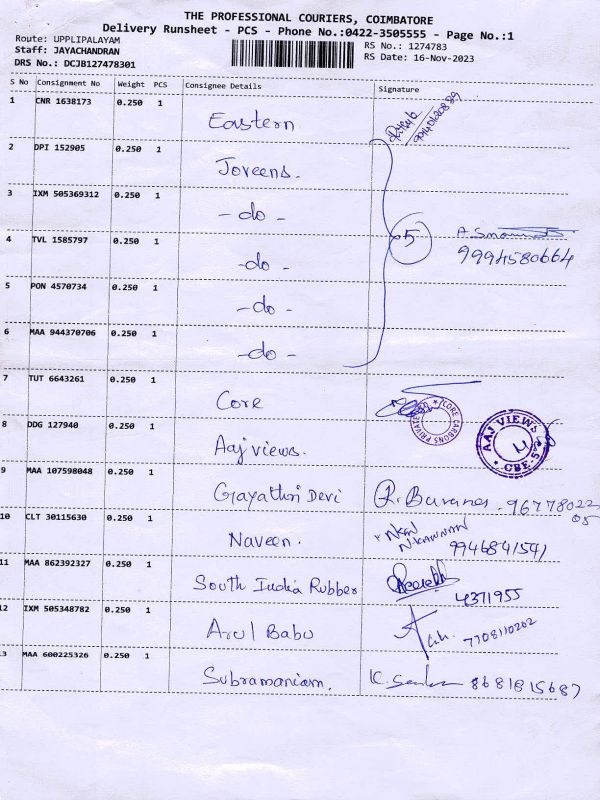 THE PROFESSIONAL COURIERS, COIMBATORE
Delivery Runsheet - PCS - Phone No.:0422-3505555 - Page No.:1
Route: UPPLIPALAYAM
Staff: JAYACHANDRAN
DRS No.: DCJB127478301
RS No.: 1274783
RS Date: 16-Nov-2023
S No Consignment No Weight PCS Consignee Details Signature
1 CNR 1638173 0.250 1 Eastern
2 DPI 152905 0.250 1 Joveens.
3 IXM 505369312 0.250 1 - do -
4 TVL 1585797 0.250 1 - do -
5 9994580664
5 PON 4570734 0.250 1 - do -
6 MAA 944370706 0.250 1 - do -
7 TUT 6643261 0.250 1 Core
CORE CARBONS PRIVATE
8 DDG 127940 0.250 1 Aaj views.
AAJ VIEWS
9 MAA 107598048 0.250 1 Gayathri Devi 9677802205
10 CLT 30115630 0.250 1 Naveen. 9946841541
11 MAA 862392327 0.250 1 South India Rubber 4371955
12 IXM 505348782 0.250 1 Arul Babu 7708110202
13 MAA 600225326 0.250 1 Subramaniam. 8681815687